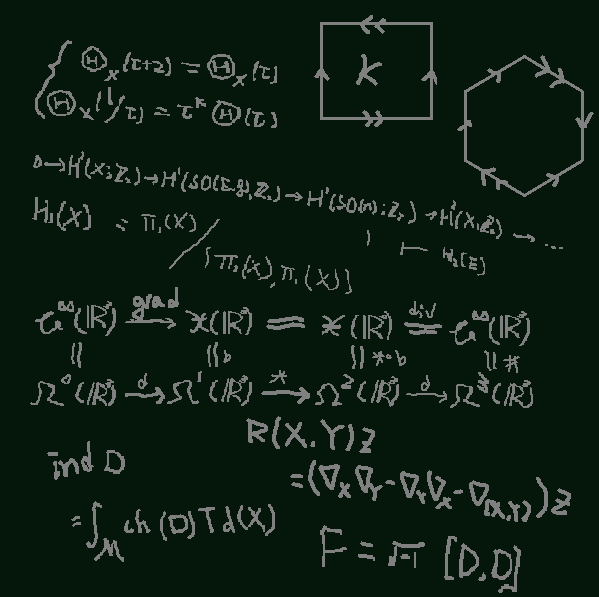 Θ_X(τ+2) = Θ_X(τ)
Θ_X(1/τ) = τ^k Θ(τ)
K
0 → H¹(X;Z₂) → H¹(SO(E,g);Z₂) → H¹(SO(n);Z₂) → H²(X;Z₂) → ...
1 ↦ w₂(E)
H₁(X) = π₁(X) / [π₁(X), π₁(X)]
C^∞(ℝ³) →grad 𝔛(ℝ³) = 𝔛(ℝ³) =div C^∞(ℝ³)
|| || b || *∘b || *
Ω⁰(ℝ³) →d Ω¹(ℝ³) →* Ω²(ℝ³) →d Ω³(ℝ³)
R(X,Y)Z
= (∇_X ∇_Y - ∇_Y ∇_X - ∇_[X,Y]) Z
ind D
= ∫_M ch(D) Td(X)
F = √-1 [D, D]